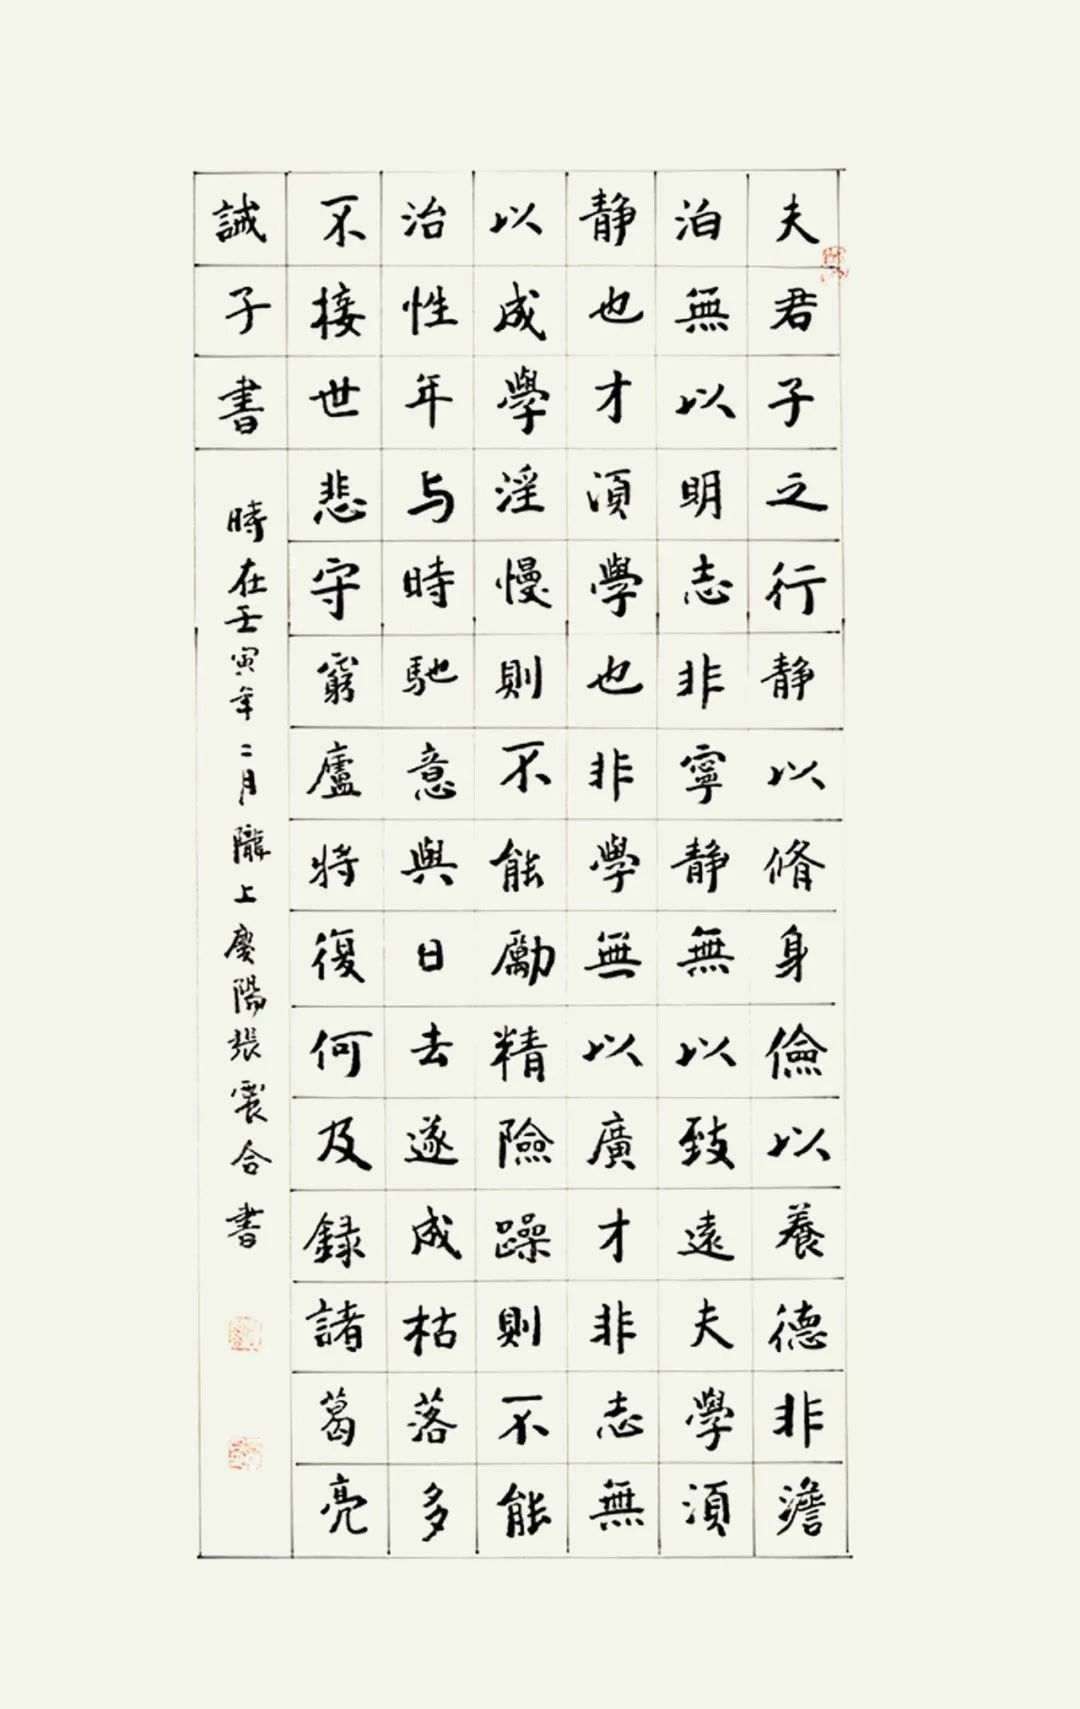 夫君子之行静以脩身儉以養德非澹
泊無以明志非寧静無以致遠夫學須
静也才須學也非學無以廣才非志無
以成學淫慢則不能勵精險躁則不能
治性年与時馳意與日去遂成枯落多
不接世悲守窮廬將復何及録諸葛亮
誡子書
時在壬寅年二月隴上慶陽張震合書